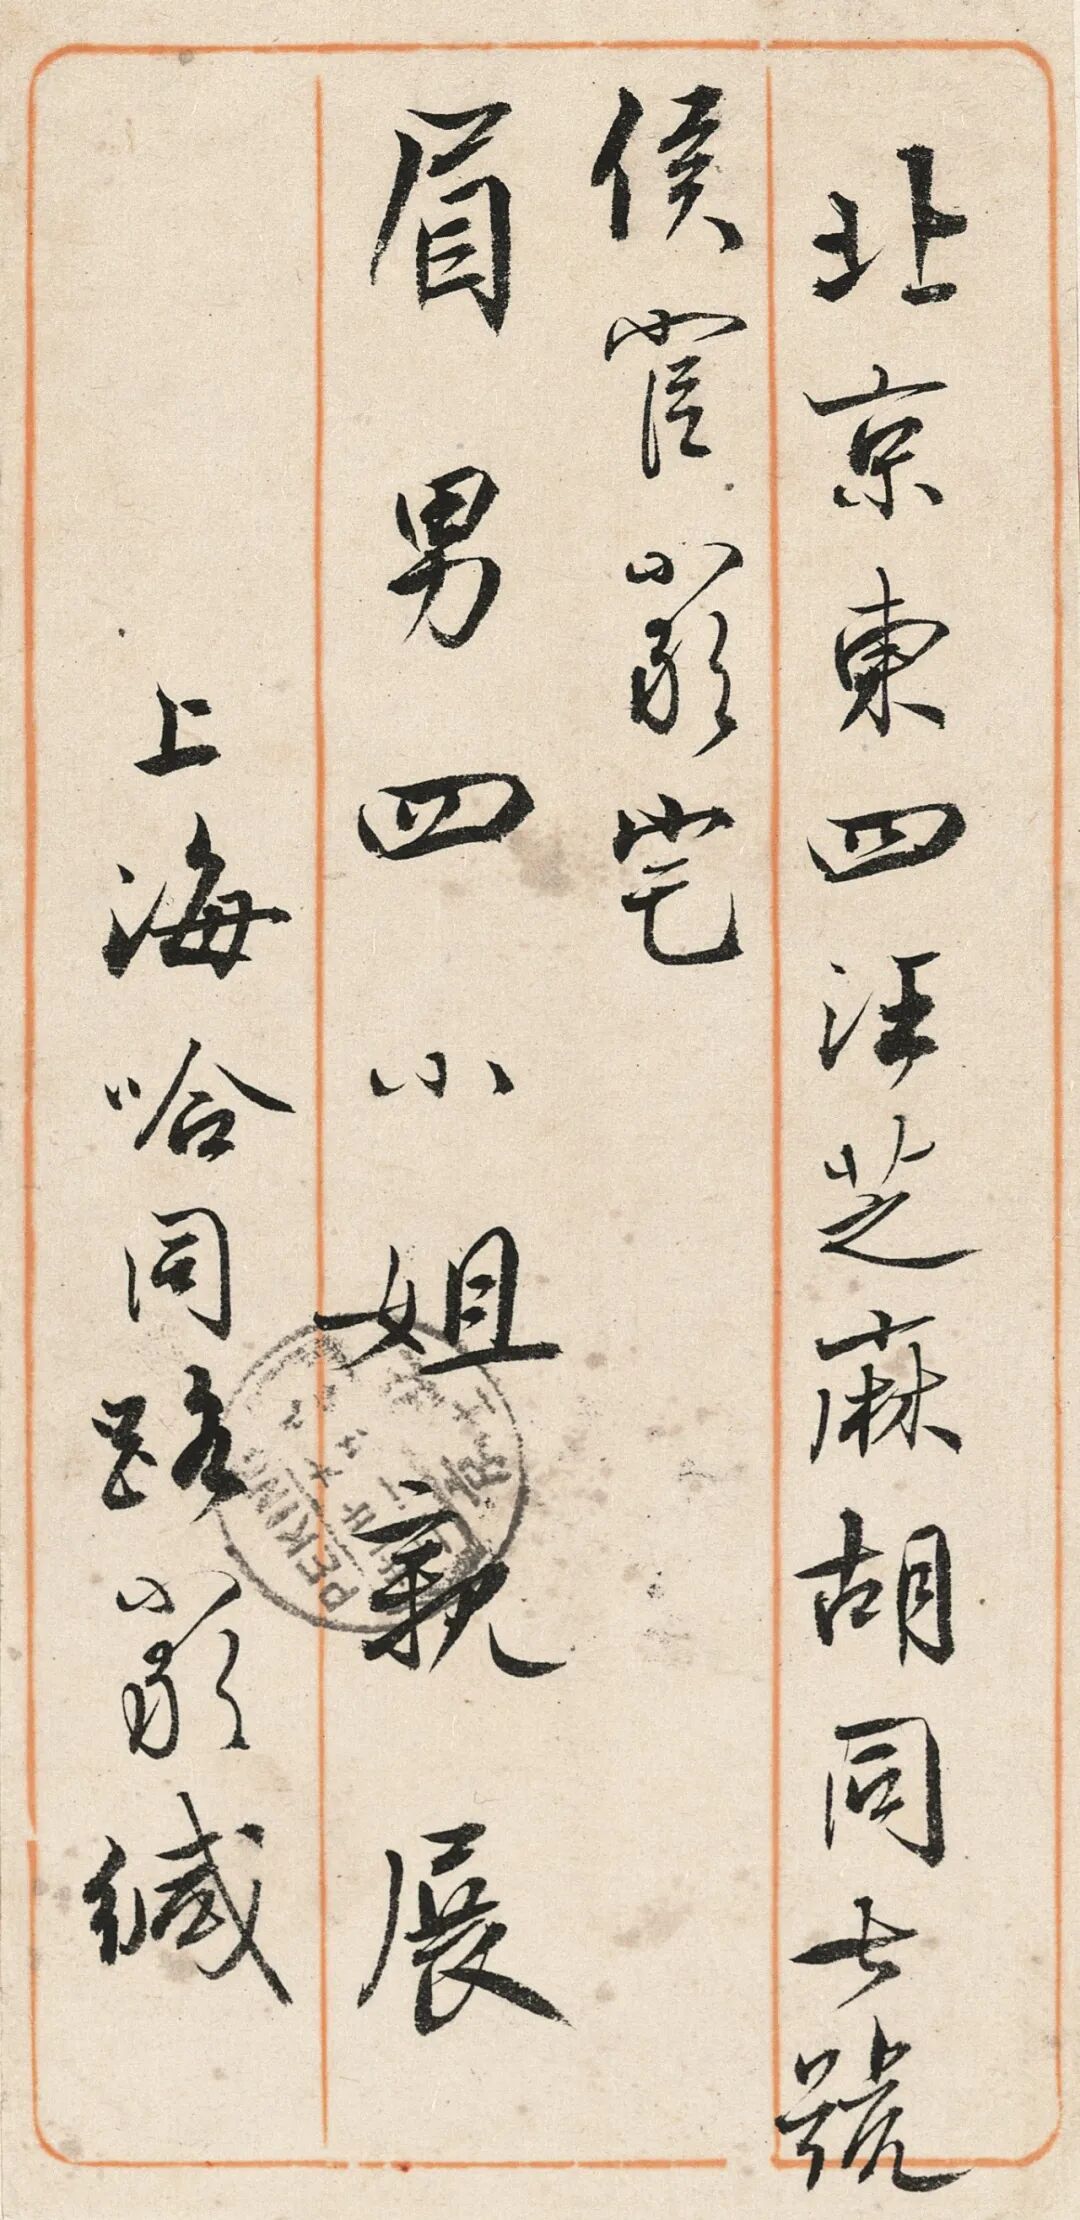 北京東四汪芝麻胡同七號
侯官嚴宅
眉男四小姐親展
上海哈同路嚴緘
PEKING